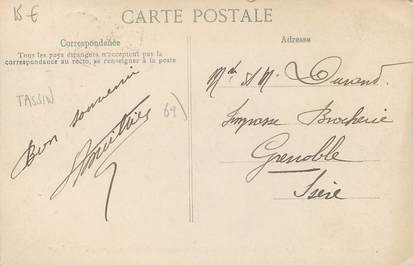 15 €
CARTE POSTALE
Correspondance
Tous les pays étrangers n'acceptent pas la
correspondance au recto, se renseigner à la poste
TASSIN
69)
Bon souvenir
Adresse
M. Durand
Impasse Brocherie
Grenoble
Isère